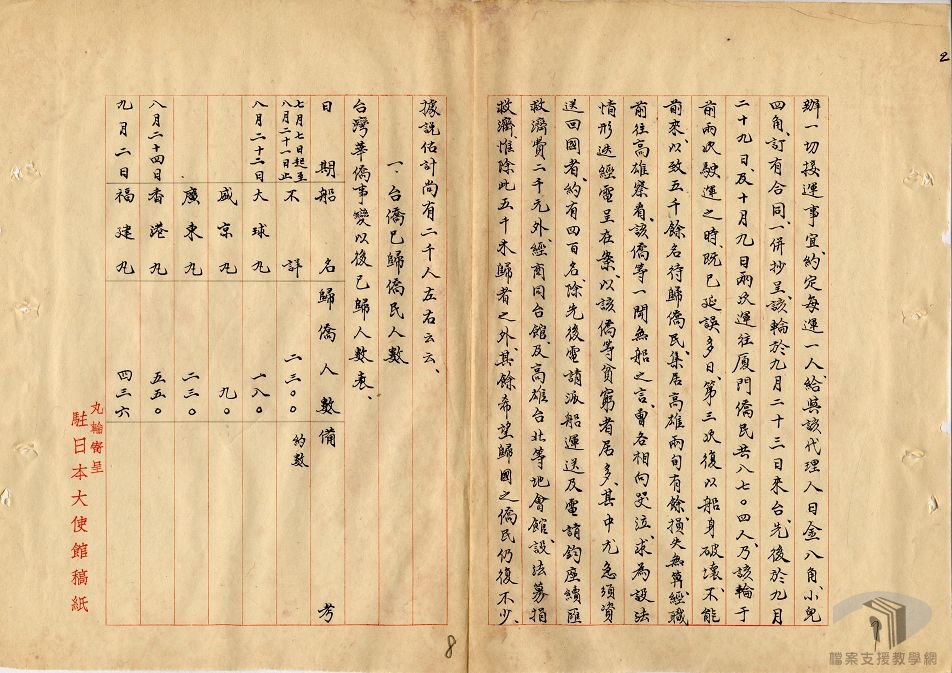 2
辦一切接運事宜約定每運一人、給與該代理人日金八角、小兒
四角、訂有合同、一併抄呈、該輪於九月二十三日來台、先後於九月
二十九日、及十月九日兩次運往厦門僑民共八七〇四人、乃該輪于
前兩次駛運之時、既已延誤多日、第三次復以船身破壞、不能
前來、以致五千餘名待歸僑民、集居高雄兩旬有餘、損失無算、經職
前往高雄察看、該僑等一聞無船之言、曾各相向哭泣、求為設法
情形迭經電呈在案、以該僑等貧窮者居多、其中尤急須資
送回國者、約有四百名、除先後電請派船運送及電請鈞座續匯
救濟費二千元外、經商同台館、及高雄台北等地會館、設法募捐
救濟、惟除此五千未歸者之外、其餘希望歸國之僑民仍復不少、
據說估計尚有二千人左右云云、
一、台僑已歸僑民人數
台灣華僑事變以後已歸人數表、
日期 船名 歸僑人數 備考
七月七日起至八月二十一日止 不詳 二三〇〇 約數
八月二十二日 大球丸 一八〇
盛京丸 九〇
廣東丸 二三〇
八月二十四日 香港丸 五五〇
九月二日 福建丸 四三六
丸輪寄呈
駐日本大使館稿紙
8
檔案支援教學網